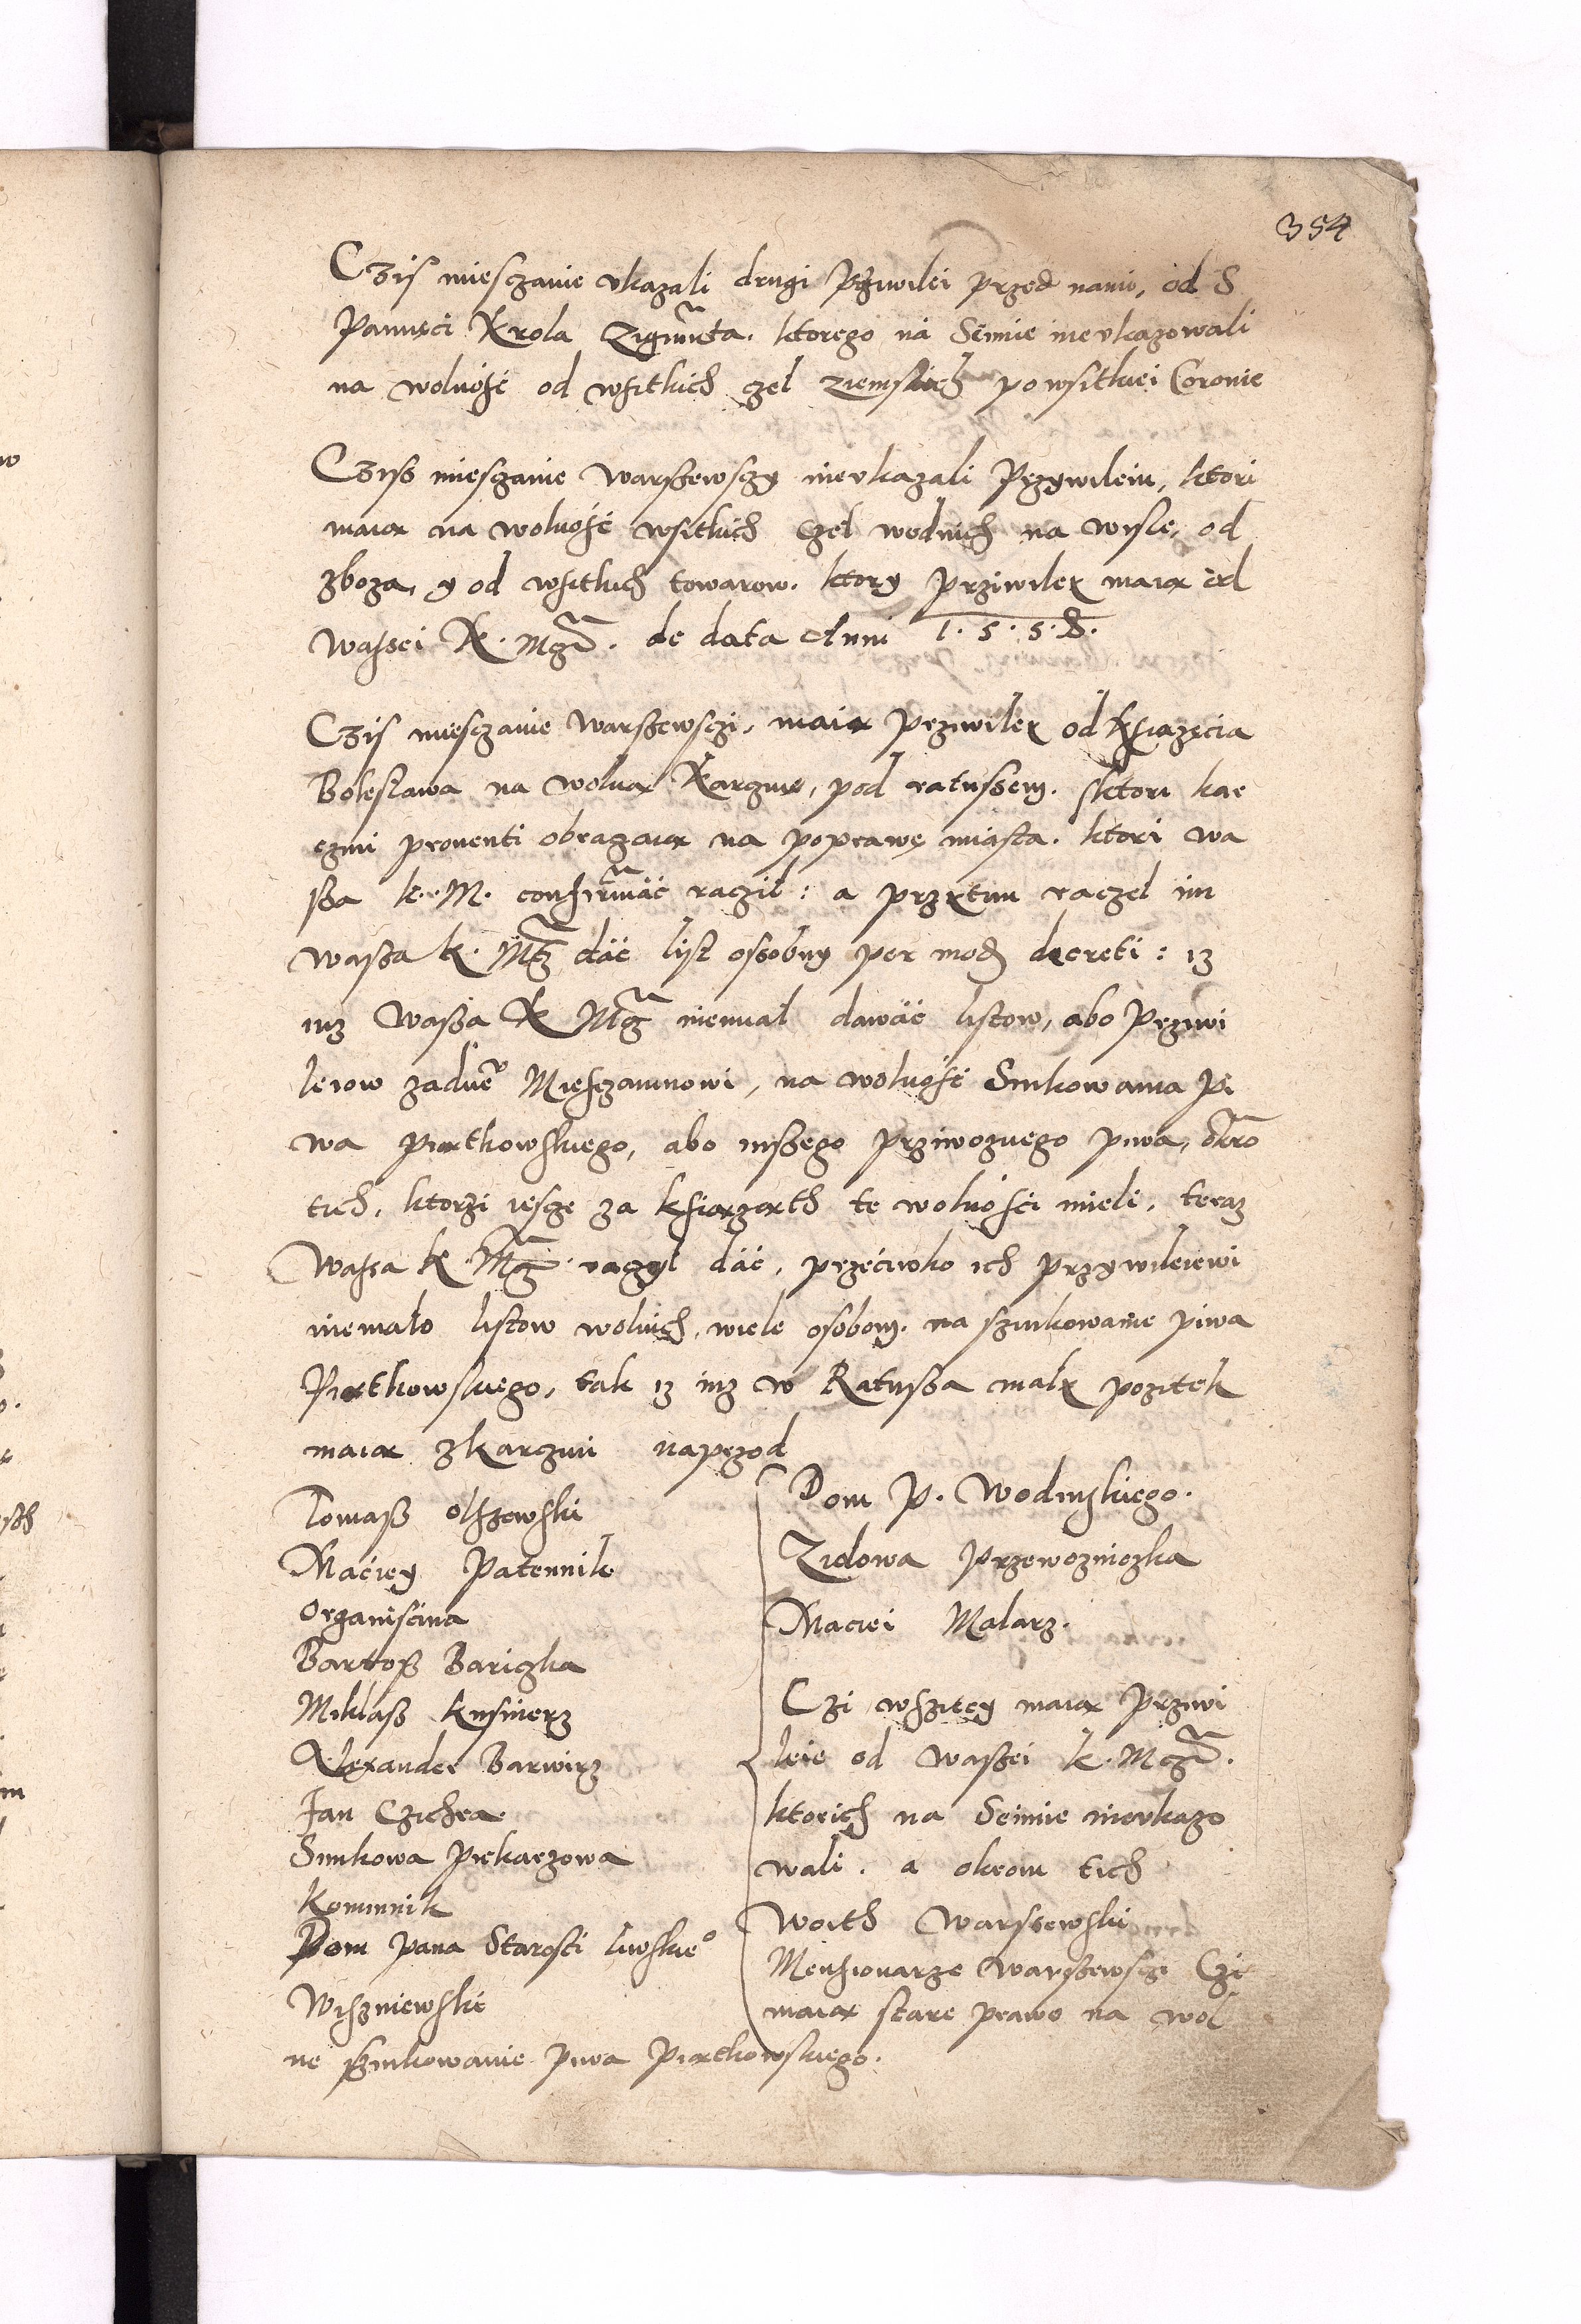 354
Czis miesczanie vkazali drugi przwilei przed nami, od S
Pamięci Krola Zigmũta. ktorego na Seimie nievkazowali
na wolność od wsitkich czel ziemskich po wsitkiei Coronie
Czisz miesczanie Warszewsczy nievkazali Przywileiu, ktori
maią na wolność wsitkich czel wodnich na wisle, od
zboza, y od wsitkich towarow. ktory prziwilei maią od
wassei K. Mczi. de data Anni 1.5.5.8.
Czis miesczanie Warszewsczi, maią prziwilei od Książęcia
Boleslawa na wolną Karczmę, pod ratuszem. sktori kar
czmi prouenti obrazaią na poprawę miasta. ktori wa
sza k. M. confirmać raczil: a przitim raczel im
wasza k. Mcz dać list ossobny per mod decreti: iz
iuz wasza K Mcz niemiał dawać listow, abo prziwi
leiow zadnẽ Miesczaninowi, na wolność Sinkowania pi
wa piątkowskiego, abo inszego prziwoznego piwa, okro
tich, ktorzi iescze za książąth te wolności mieli, teraz
Wassa K Mcz raczyl dać, przeciwko ich przywileiewi
niemało listow wolnich, wiele osobom. na szinkowanie piwa
Piątkowskiego, tak iz iuz w Ratusza mały pozitek
maią zkarczmi naprzod
Tomasz Olszewski
Maciey Patennik
Organiscina
Bartosz Bariczka
Miklasz kusnierz
Alexander Barwirz
Jan Czichra
Simkowa piekarzowa
Kominnik
Dom pana Starosti liwskie°
Wiszniewski
Dom P. Wodinskiego.
Zidowa Przewozniczka
Maciei Malarz.
Czi wszitcy maią prziwi
leie od waszei k. Mczi.
ktorich na Seimie nievkazo
wali. a okrom tich
Woith Warszewski
Mensionarze Warszewsci Czi
maią stare prawo na wol
ne szinkowanie piwa piątkowskiego.